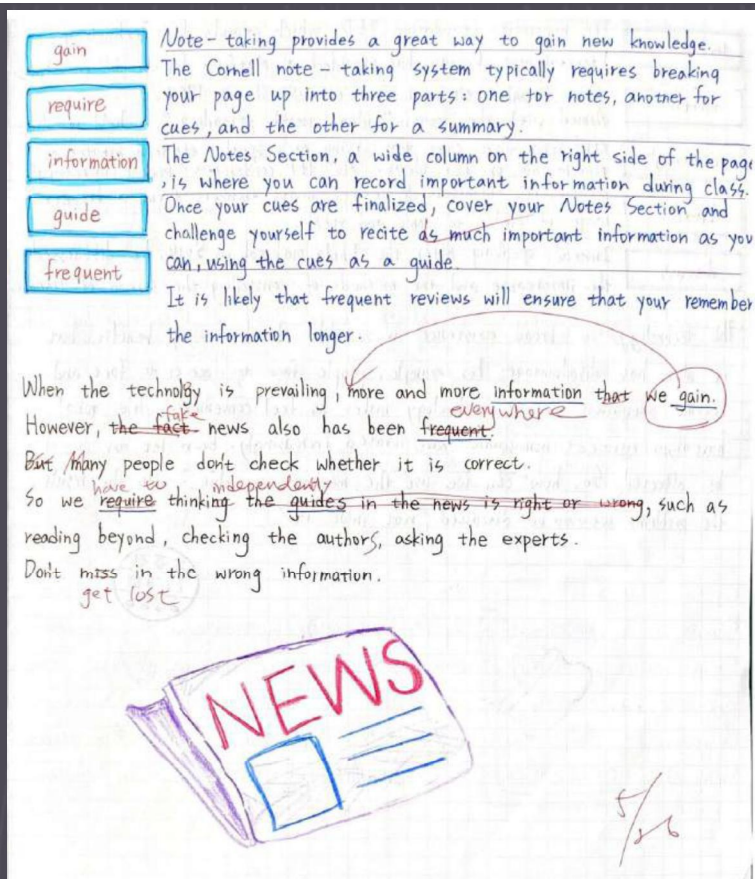 gain
require
information
guide
frequent
Note-taking provides a great way to gain new knowledge.
The Cornell note-taking system typically requires breaking
your page up into three parts: one for notes, another for
cues, and the other for a summary.
The Notes Section, a wide column on the right side of the page
, is where you can record important information during class.
Once your cues are finalized, cover your Notes Section and
challenge yourself to recite as much important information as you
can, using the cues as a guide.
It is likely that frequent reviews will ensure that your remember
the information longer.
When the technolgy is prevailing, more and more information that we gain.
fake everywhere
However, the fact news also has been frequent.
But Many people don't check whether it is correct.
have to independently
So we require thinking the guides in the news is right or wrong, such as
reading beyond, checking the authors, asking the experts.
Don't miss in the wrong information.
get lost
NEWS
5/26